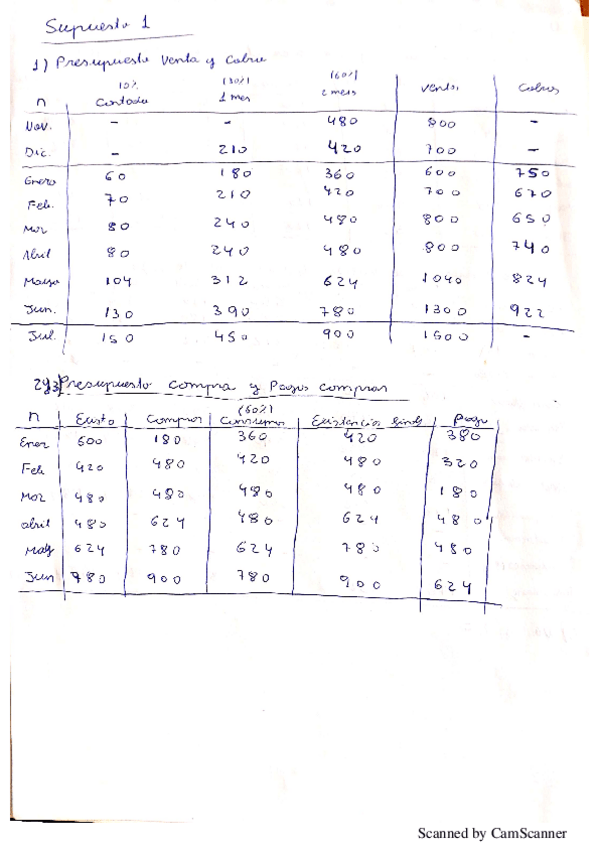 Supuesto 1
1) Presupuesto Venta y Cobro
10% (30%) (60%)
n Contado 1 mes 2 meses Ventas Cobros
Nov. - - 480 800 -
Dic. - 210 420 700 -
Enero 60 180 360 600 750
Feb. 70 210 420 700 670
Mar 80 240 480 800 650
Abril 80 240 480 800 740
Mayo 104 312 624 1040 824
Jun. 130 390 780 1300 922
Jul. 150 450 900 1500 -
2y3) Presupuesto compra y Pagos compras
(60%)
n Existo Compras Consumo Existencias finals Pago
Ener 600 180 360 420 380
Feb 420 480 420 480 320
Mar 480 480 480 480 180
abril 480 624 480 624 480
May 624 780 624 780 480
Jun 780 900 780 900 624
Scanned by CamScanner